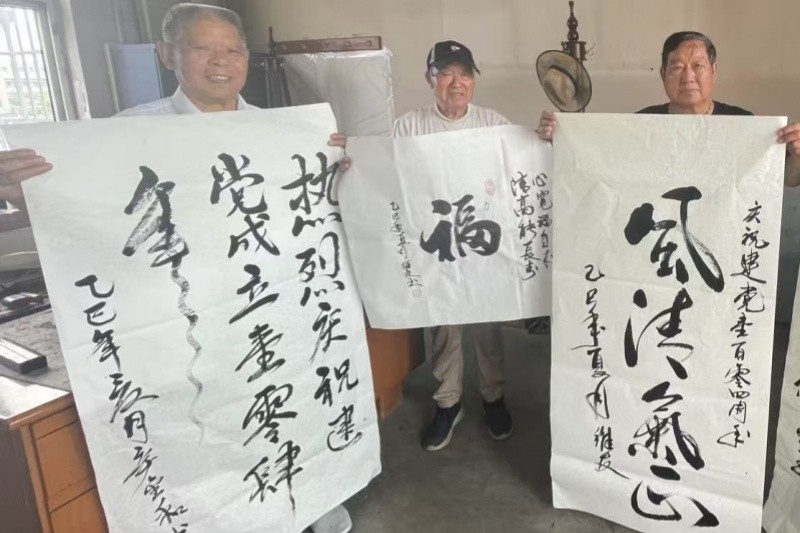 热烈庆祝建
党成立壹零肆
年
乙巳年月
心宽福自来
清高能長寿
福
乙巳
庆祝建党壹百零四周年
风清氣正
乙巳年夏月维友